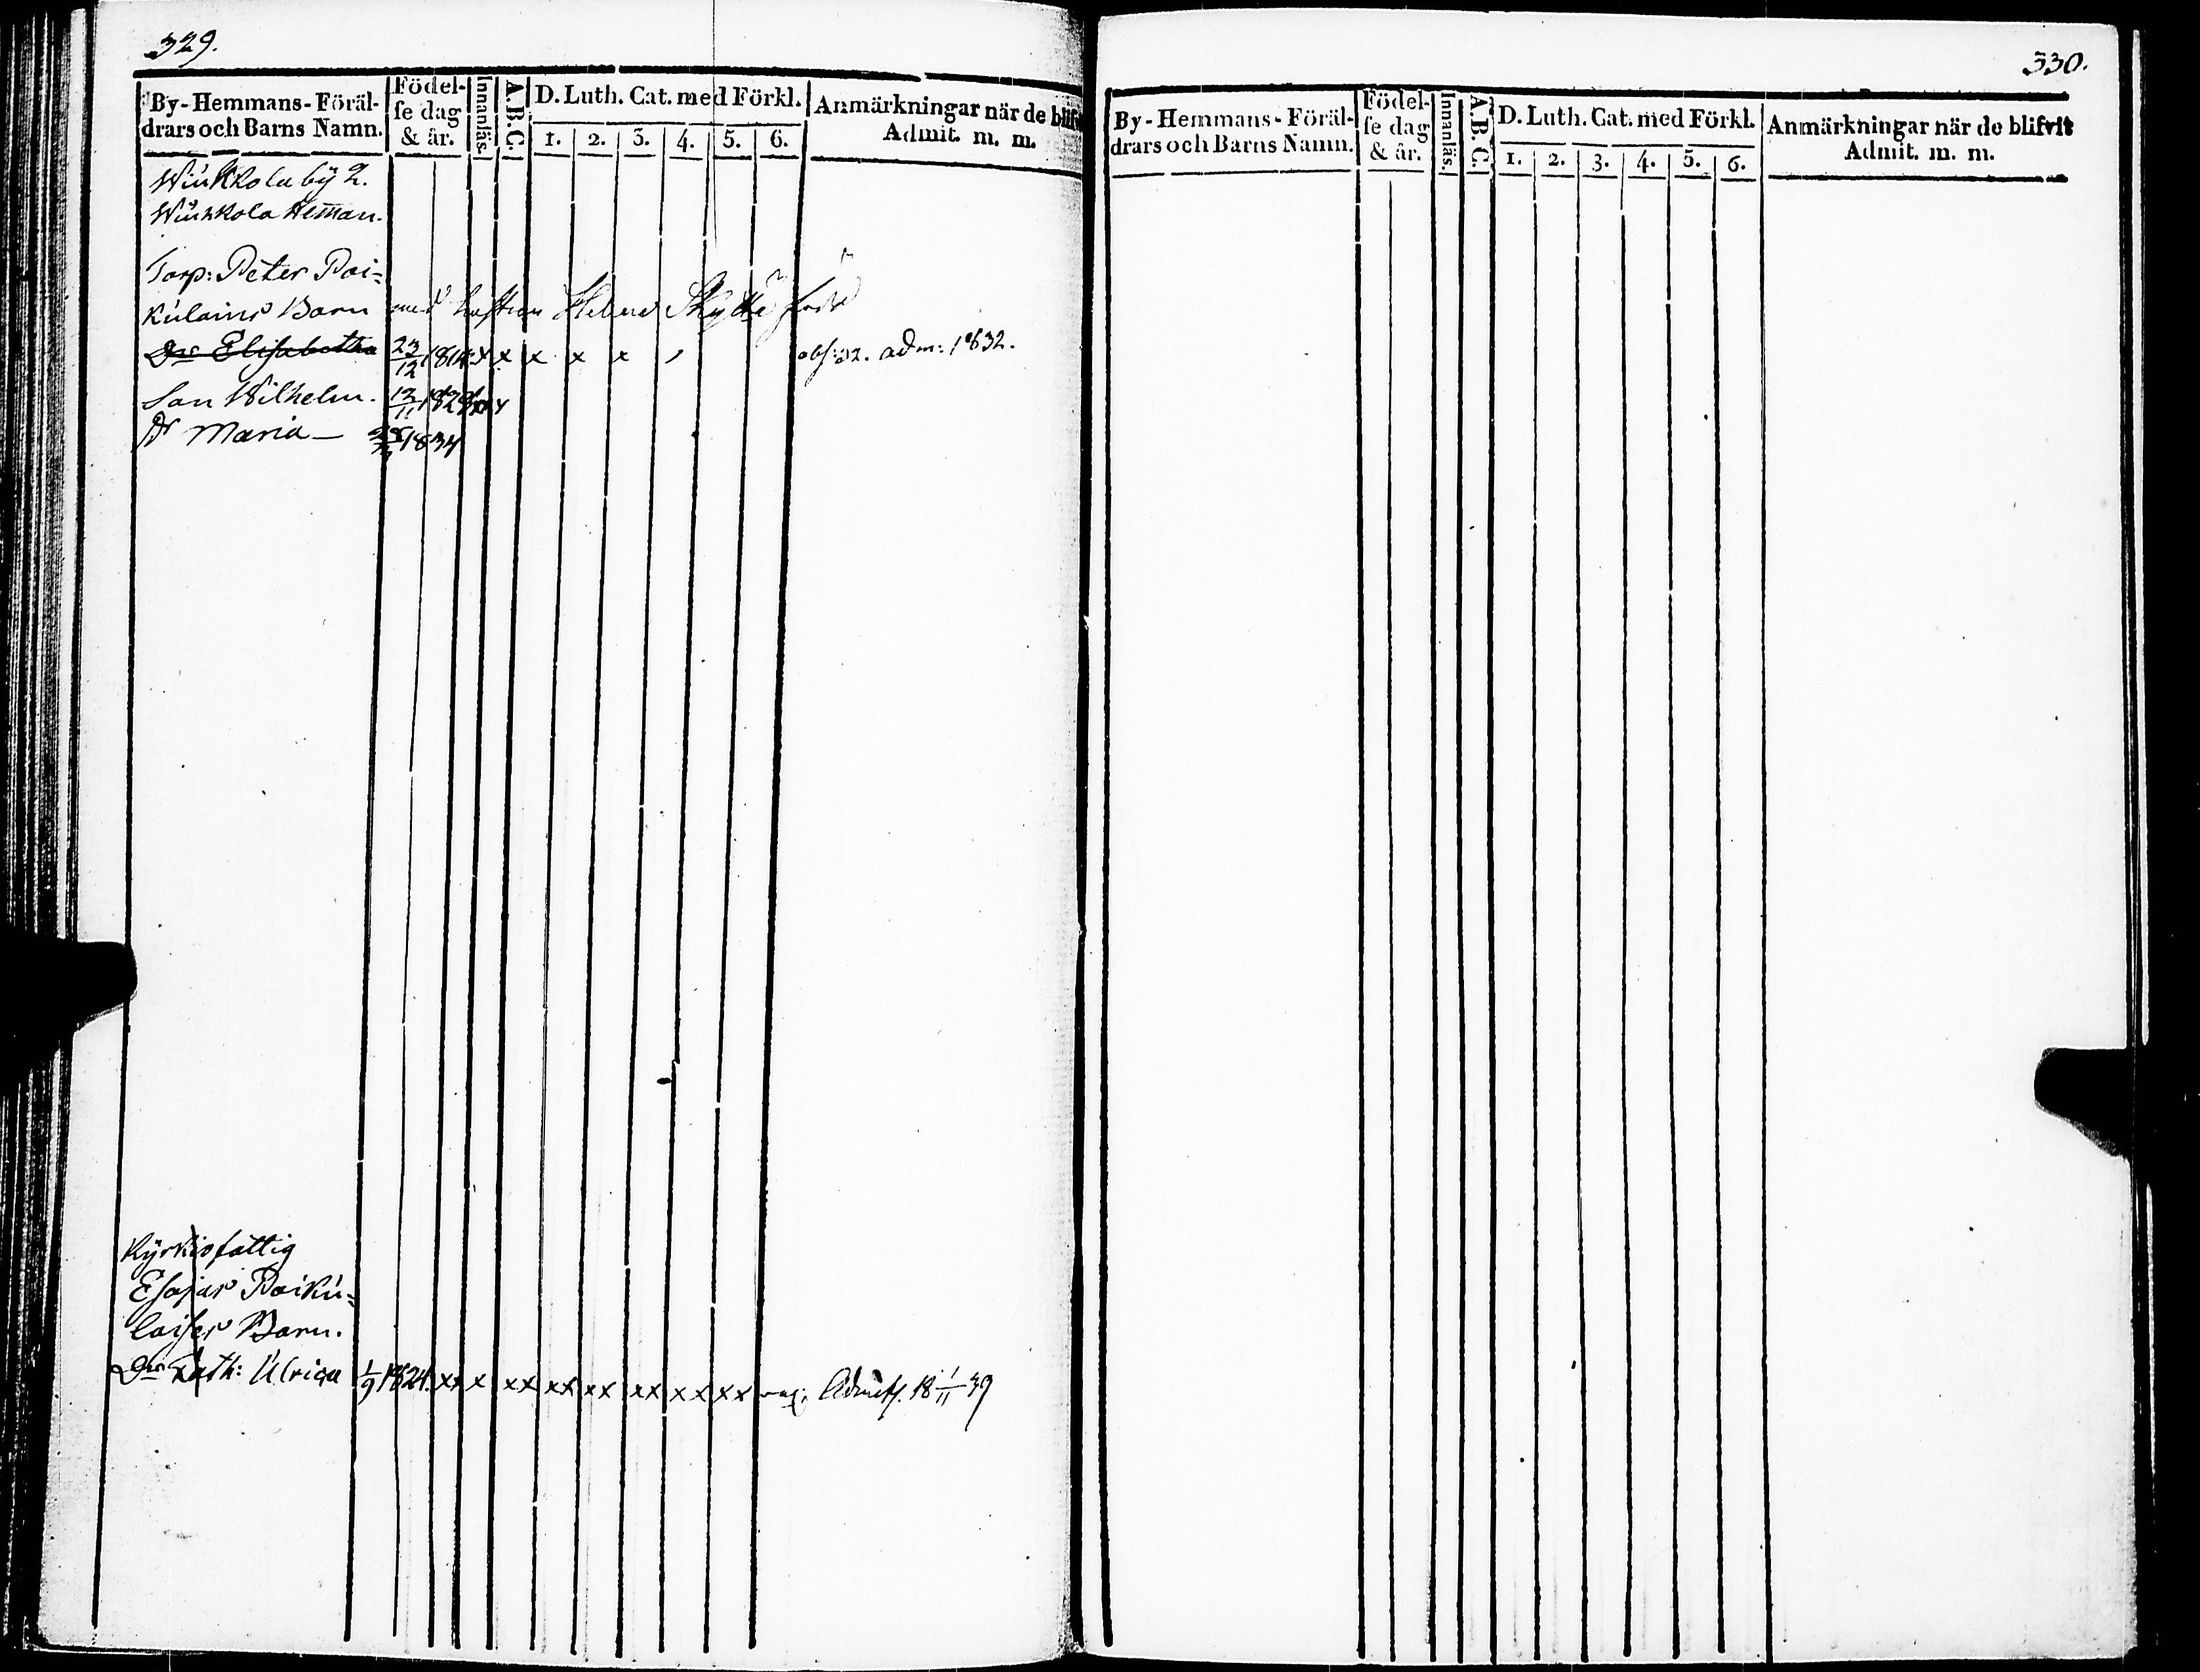 329.
By-Hemmans-Föräl-
drars och Barns Namn.
Födel-
se dag
& år.
Innanläs.
A.B.C.
D. Luth. Cat. med Förkl.
1. 2. 3. 4. 5. 6.
Anmärkningar när de blif
Admit. m. m.
by 2.
Heman.
Torp: Peter Pai=
kulains Barn med hustrun Helena Skyttä
Dr Elisabetha 23/12 181 x x x x x obs: 32. adm: 1832.
Son Wilhelm. 12/11 182
Dr Maria — 1834
Kyrkiofattig
Esajas Paiku=
laisen Barn.
Dr Cath: Ulrica 1/9 1824. xx x xx xx xx xx xx xx Admitt. 18 1/11 39
330.
By-Hemmans-Föräl-
drars och Barns Namn.
Födel-
se dag
& år.
Innanläs.
A.B.C.
D. Luth. Cat. med Förkl.
1. 2. 3. 4. 5. 6.
Anmärkningar när de blifvit
Admit. m. m.